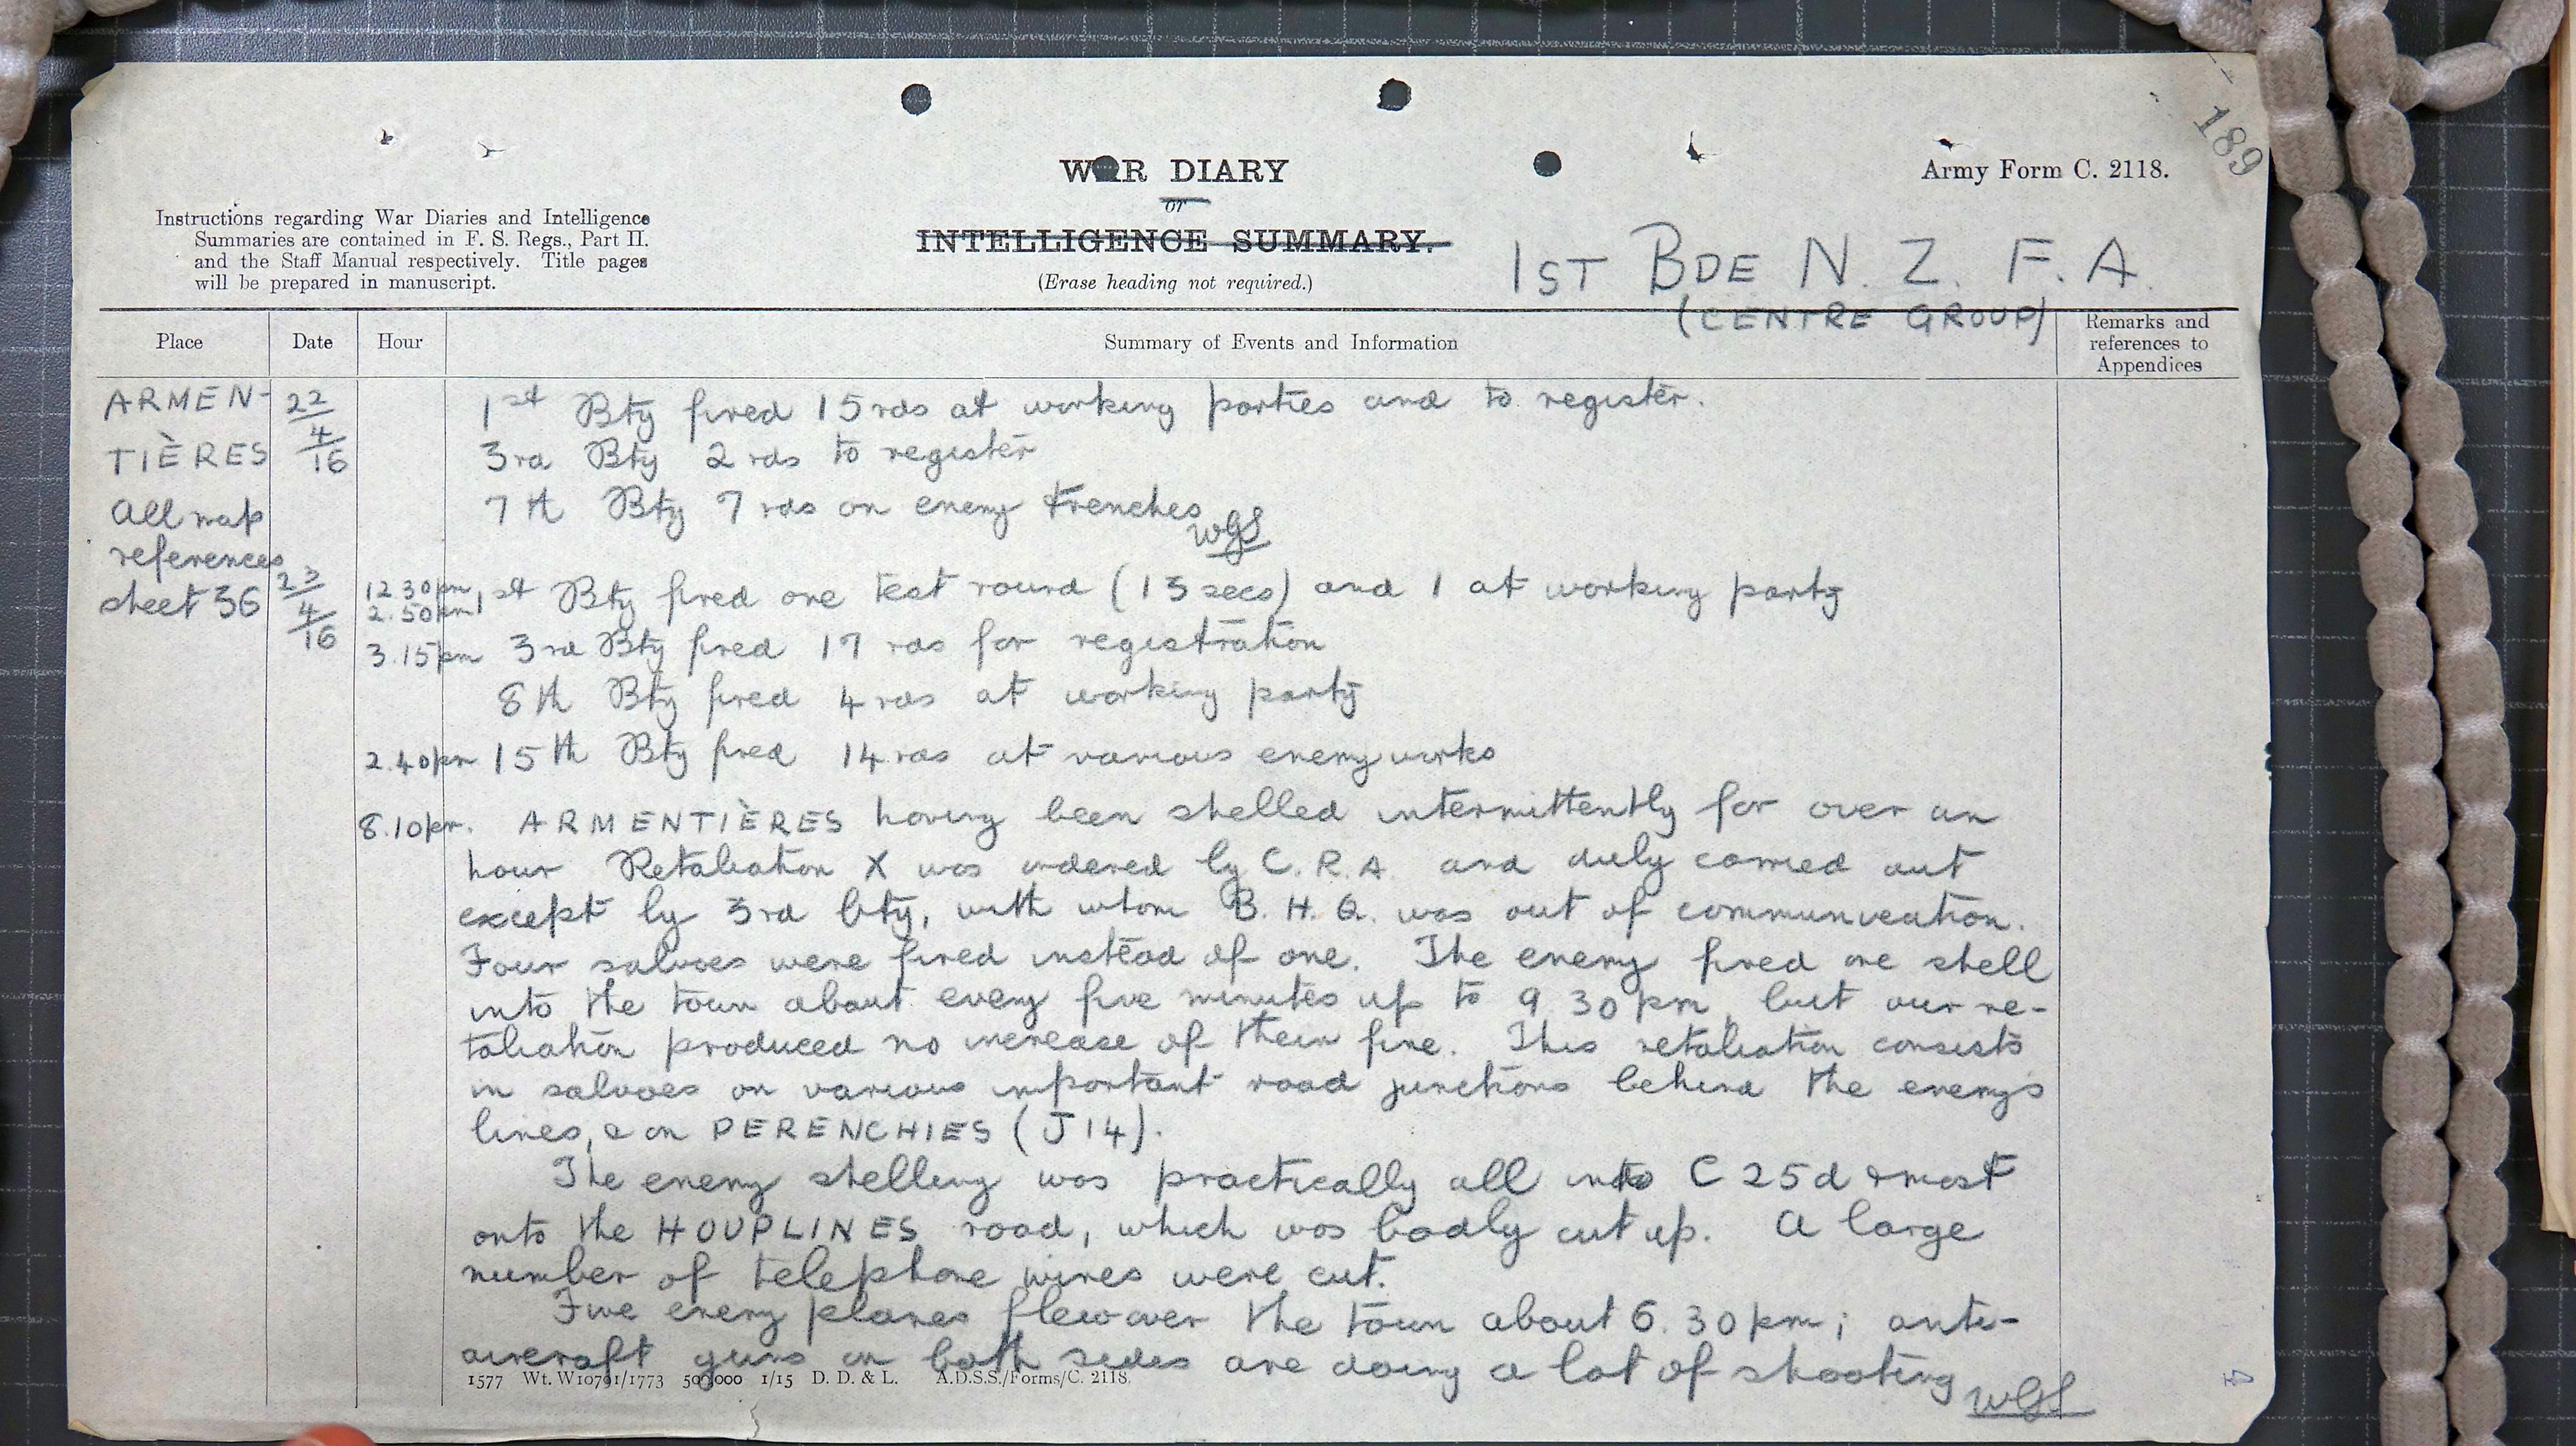 189
WAR DIARY
or
INTELLIGENCE SUMMARY.
(Erase heading not required.)
Army Form C. 2118.
Instructions regarding War Diaries and Intelligence
Summaries are contained in F. S. Regs., Part II.
and the Staff Manual respectively. Title pages
will be prepared in manuscript.
1ST BDE N. Z. F. A.
(CENTRE GROUP)
Place Date Hour Summary of Events and Information Remarks and
references to
Appendices
ARMEN- 22/4/16 1st Bty fired 15 rds at working parties and to register.
TIÈRES 3rd Bty 2 rds to register
All map 7th Bty 7 rds on enemy trenches
references WGS
sheet 36 23/4/16 12.30pm 1st Bty fired one test round (13 secs) and 1 at working party
2.50pm
3.15pm 3rd Bty fired 17 rds for registration
8th Bty fired 4 rds at working party
2.40pm 15th Bty fired 14 rds at various enemy works
8.10pm. ARMENTIÈRES having been shelled intermittently for over an
hour Retaliation X was ordered by C.R.A. and duly carried out
except by 3rd bty, with whom B.H.Q. was out of communication.
Four salvoes were fired instead of one. The enemy fired one shell
into the town about every five minutes up to 9.30pm, but our re-
taliation produced no increase of their fire. This retaliation consists
in salvoes on various important road junctions behind the enemys
lines, & on PERENCHIES (J14).
The enemy shelling was practically all into C 25d & most
onto the HOUPLINES road, which was badly cut up. A large
number of telephone wires were cut.
Five enemy planes flew over the town about 6.30pm; anti-
aircraft guns on both sides are doing a lot of shooting WGS
1577 Wt. W10791/1773 500,000 1/15 D. D. & L. A.D.S.S./Forms/C. 2118.